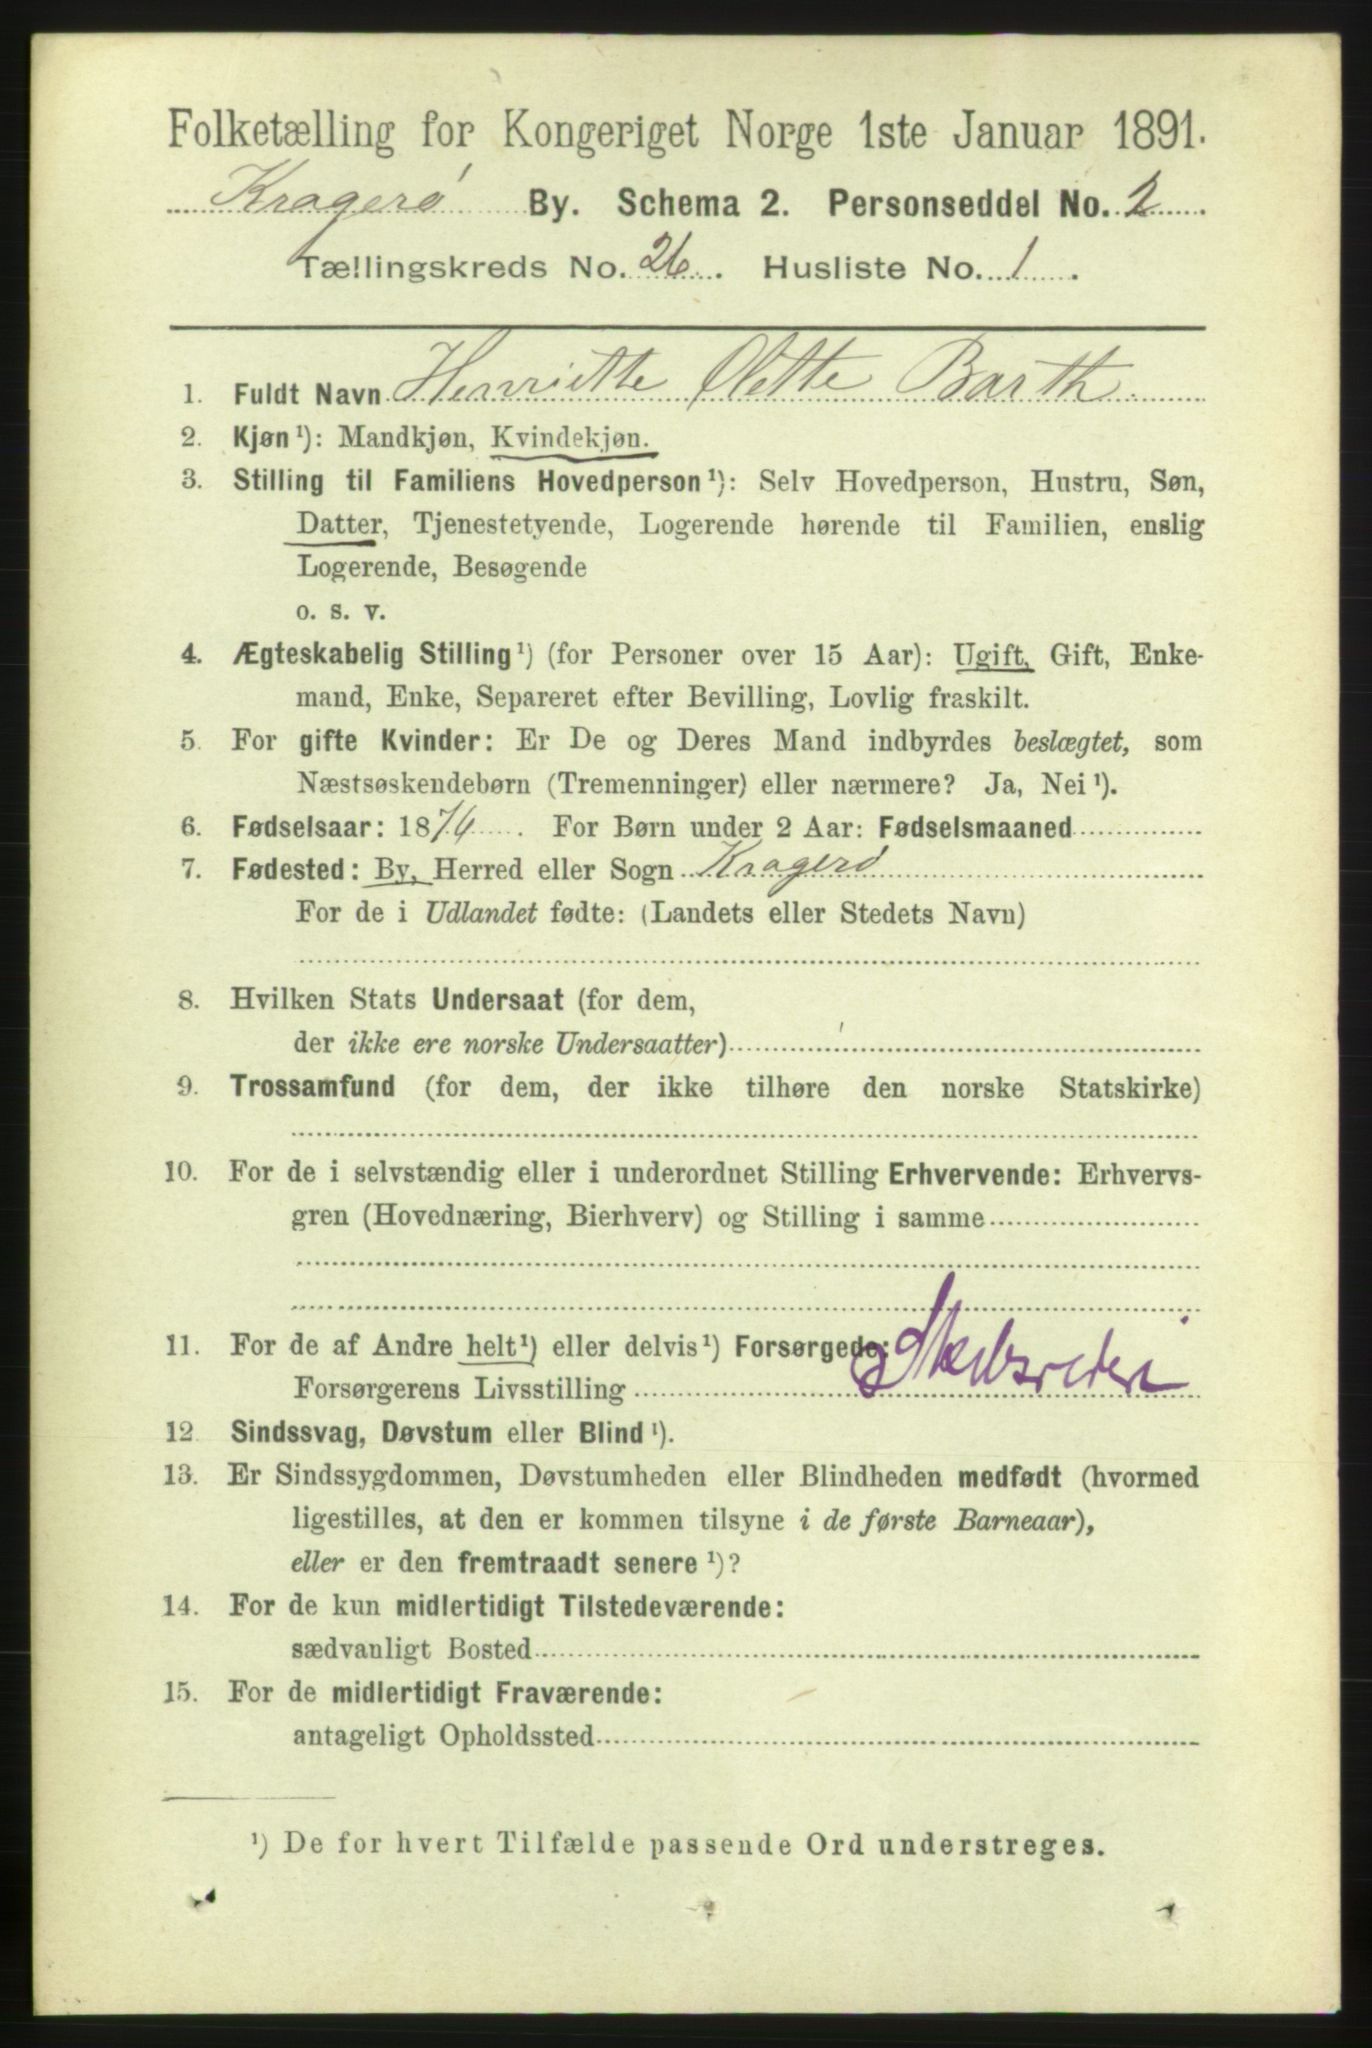 Folketælling for Kongeriget Norge 1ste Januar 1891.
Kragerø By. Schema 2. Personseddel No. 2
Tællingskreds No. 26. Husliste No. 1.
1. Fuldt Navn Henriette Olette Barth.
2. Kjøn¹): Mandkjøn, Kvindekjøn.
3. Stilling til Familiens Hovedperson¹): Selv Hovedperson, Hustru, Søn,
Datter, Tjenestetyende, Logerende hørende til Familien, enslig
Logerende, Besøgende
o. s. v.
4. Ægteskabelig Stilling¹) (for Personer over 15 Aar): Ugift, Gift, Enke-
mand, Enke, Separeret efter Bevilling, Lovlig fraskilt.
5. For gifte Kvinder: Er De og Deres Mand indbyrdes beslægtet, som
Næstsøskendebørn (Tremenninger) eller nærmere? Ja, Nei¹).
6. Fødselsaar: 1876. For Børn under 2 Aar: Fødselsmaaned
7. Fødested: By, Herred eller Sogn Kragerø
For de i Udlandet fødte: (Landets eller Stedets Navn)
8. Hvilken Stats Undersaat (for dem,
der ikke ere norske Undersaatter)
9. Trossamfund (for dem, der ikke tilhøre den norske Statskirke)
10. For de i selvstændig eller i underordnet Stilling Erhvervende: Erhvervs-
gren (Hovednæring, Bierhverv) og Stilling i samme
11. For de af Andre helt¹) eller delvis¹) Forsørgede:
Forsørgerens Livsstilling Skibsreder
12. Sindssvag, Døvstum eller Blind¹).
13. Er Sindssygdommen, Døvstumheden eller Blindheden medfødt (hvormed
ligestilles, at den er kommen tilsyne i de første Barneaar),
eller er den fremtraadt senere¹)?
14. For de kun midlertidigt Tilstedeværende:
sædvanligt Bosted
15. For de midlertidigt Fraværende:
antageligt Opholdssted
¹) De for hvert Tilfælde passende Ord understreges.